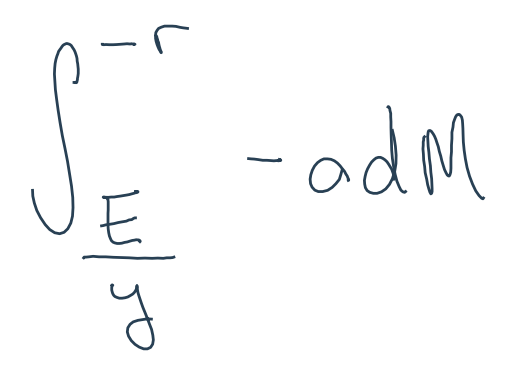 \int_{\frac{E}{y}}^{-r} -adM